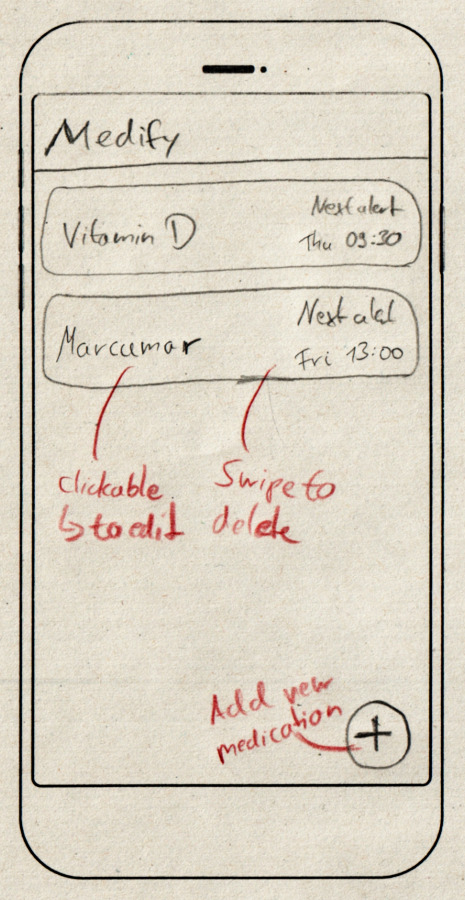 Medify
Vitamin D
Next alert
Thu 09:30
Marcumar
Next alert
Fri 13:00
clickable
↳ to edit
Swipe to
delete
Add new
medication
+